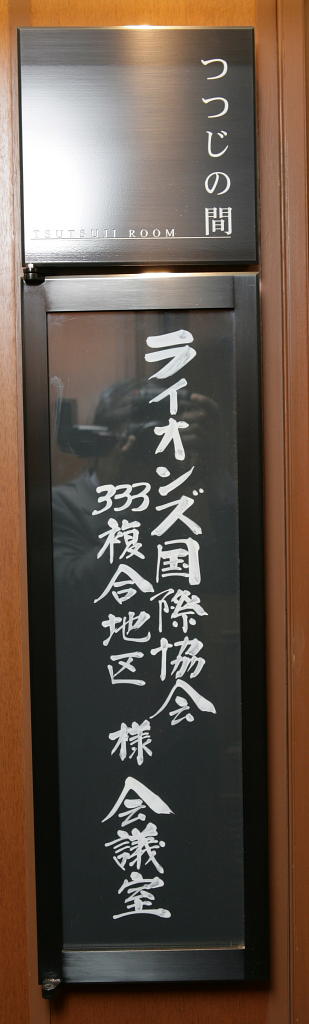 つつじの間
TSUTSUJI ROOM
ライオンズ国際協会
333複合地区
様
会議室